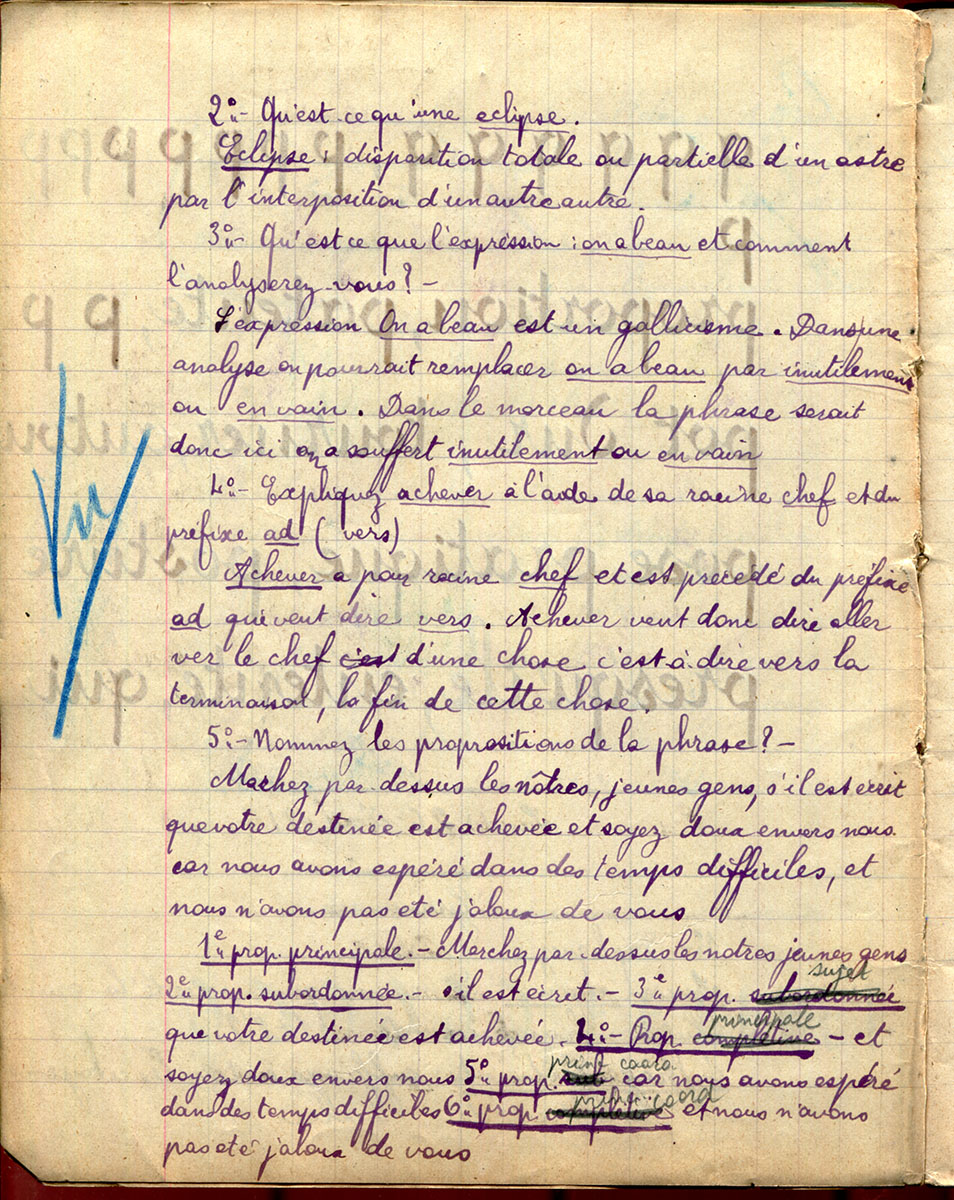 2º- Qu'est-ce qu'une eclipse.
Eclipse : disposition totale ou partielle d'un astre
par l'interposition d'un autre autre.
3º- Qu'est ce que l'expression : on a beau et comment
l'analyserez-vous ? -
L'expression On a beau est un gallicisme. Dans une
analyse on pourrait remplacer on a beau par inutilement
ou en vain. Dans le morceau la phrase serait
donc ici on a souffert inutilement ou en vain
4º- Expliquez achever à l'aide de sa racine chef et du
préfixe ad ( vers)
Achever a pour racine chef et est precédé du préfixe
ad qui veut dire vers. Achever veut donc dire aller
ver le chef c'est d'une chose c'est-à-dire vers la
terminaisol, la fin de cette chose.
5º- Nommez les proprositions de la phrase ? -
Marhez par-dessus les nôtres, jeunes gens, s'il est écrit
que votre destinée est achevée et soyez doux envers nous
car nous avons espéré dans des temps difficiles, et
nous n'avons pas eté jaloux de vous
1e prop. principale. - Marchez par-dessus les notres jeunes gens
sujet
2e prop. subordonnée. - s'il est écrit. - 3e prop. subordonnée
principale
que votre destinée est achevée. 4º- Prop. complétive - et
princ coord
soyez doux envers nous 5º prop. sub car nous avons espéré
princ. coord
dans des temps difficiles 6º prop complétive et nous n'avons
pas eté jaloux de vous
Vu